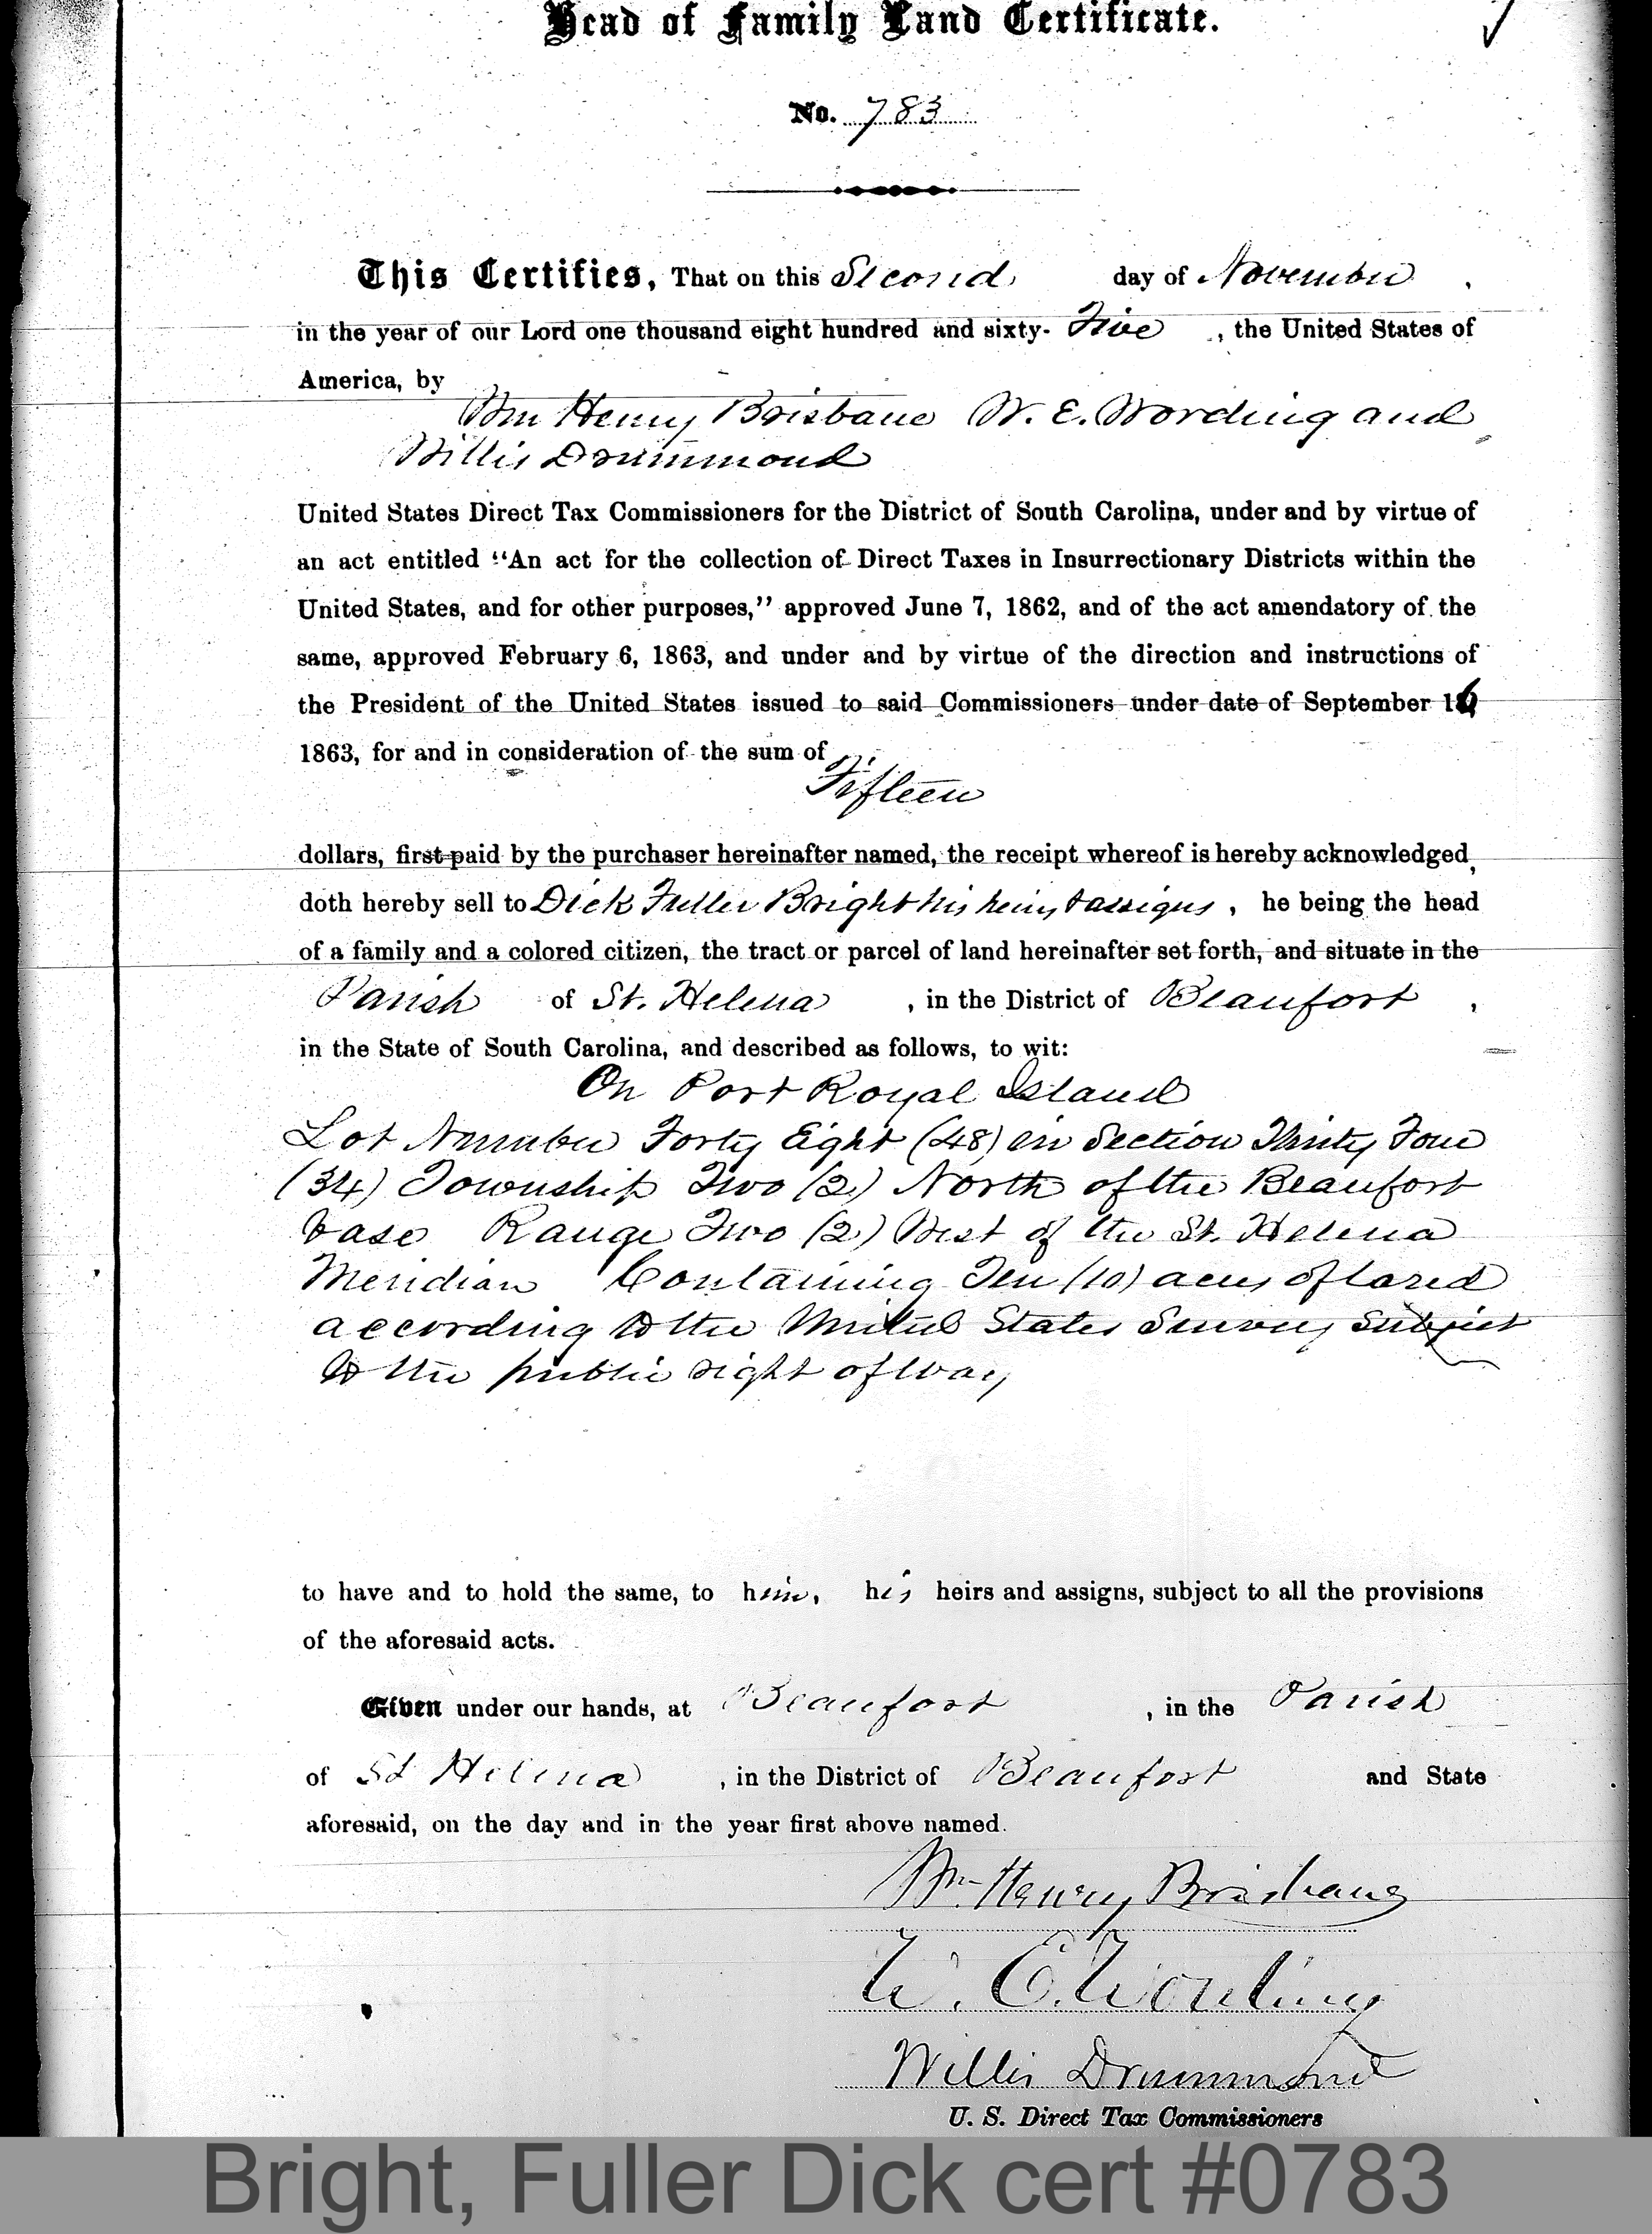 Head of Family Land Certificate.
No. 783
This Certifies, That on this Second day of November,
in the year of our Lord one thousand eight hundred and sixty- Five, the United States of
America, by
Wm Henry Brisbane W. E. Wording and
Willis Drummond
United States Direct Tax Commissioners for the District of South Carolina, under and by virtue of
an act entitled "An act for the collection of Direct Taxes in Insurrectionary Districts within the
United States, and for other purposes," approved June 7, 1862, and of the act amendatory of the
same, approved February 6, 1863, and under and by virtue of the direction and instructions of
the President of the United States issued to said Commissioners under date of September 16
1863, for and in consideration of the sum of
Fifteen
dollars, first paid by the purchaser hereinafter named, the receipt whereof is hereby acknowledged,
doth hereby sell to Dick Fuller Bright his heirs & assigns, he being the head
of a family and a colored citizen, the tract or parcel of land hereinafter set forth, and situate in the
Parish of St. Helena, in the District of Beaufort,
in the State of South Carolina, and described as follows, to wit:
On Port Royal Island
Lot Number Forty Eight (48) in Section Thirty Four
(34) Township Two (2) North of the Beaufort
base Range Two (2) West of the St. Helena
Meridian Containing Ten (10) acres of land
according to the United States Survey subject
to the public right of way
to have and to hold the same, to him, his heirs and assigns, subject to all the provisions
of the aforesaid acts.
Given under our hands, at Beaufort, in the Parish
of St Helena, in the District of Beaufort and State
aforesaid, on the day and in the year first above named.
Wm. Henry Brisbane
W. E. Wording
Willis Drummond
U. S. Direct Tax Commissioners
Bright, Fuller Dick cert #0783